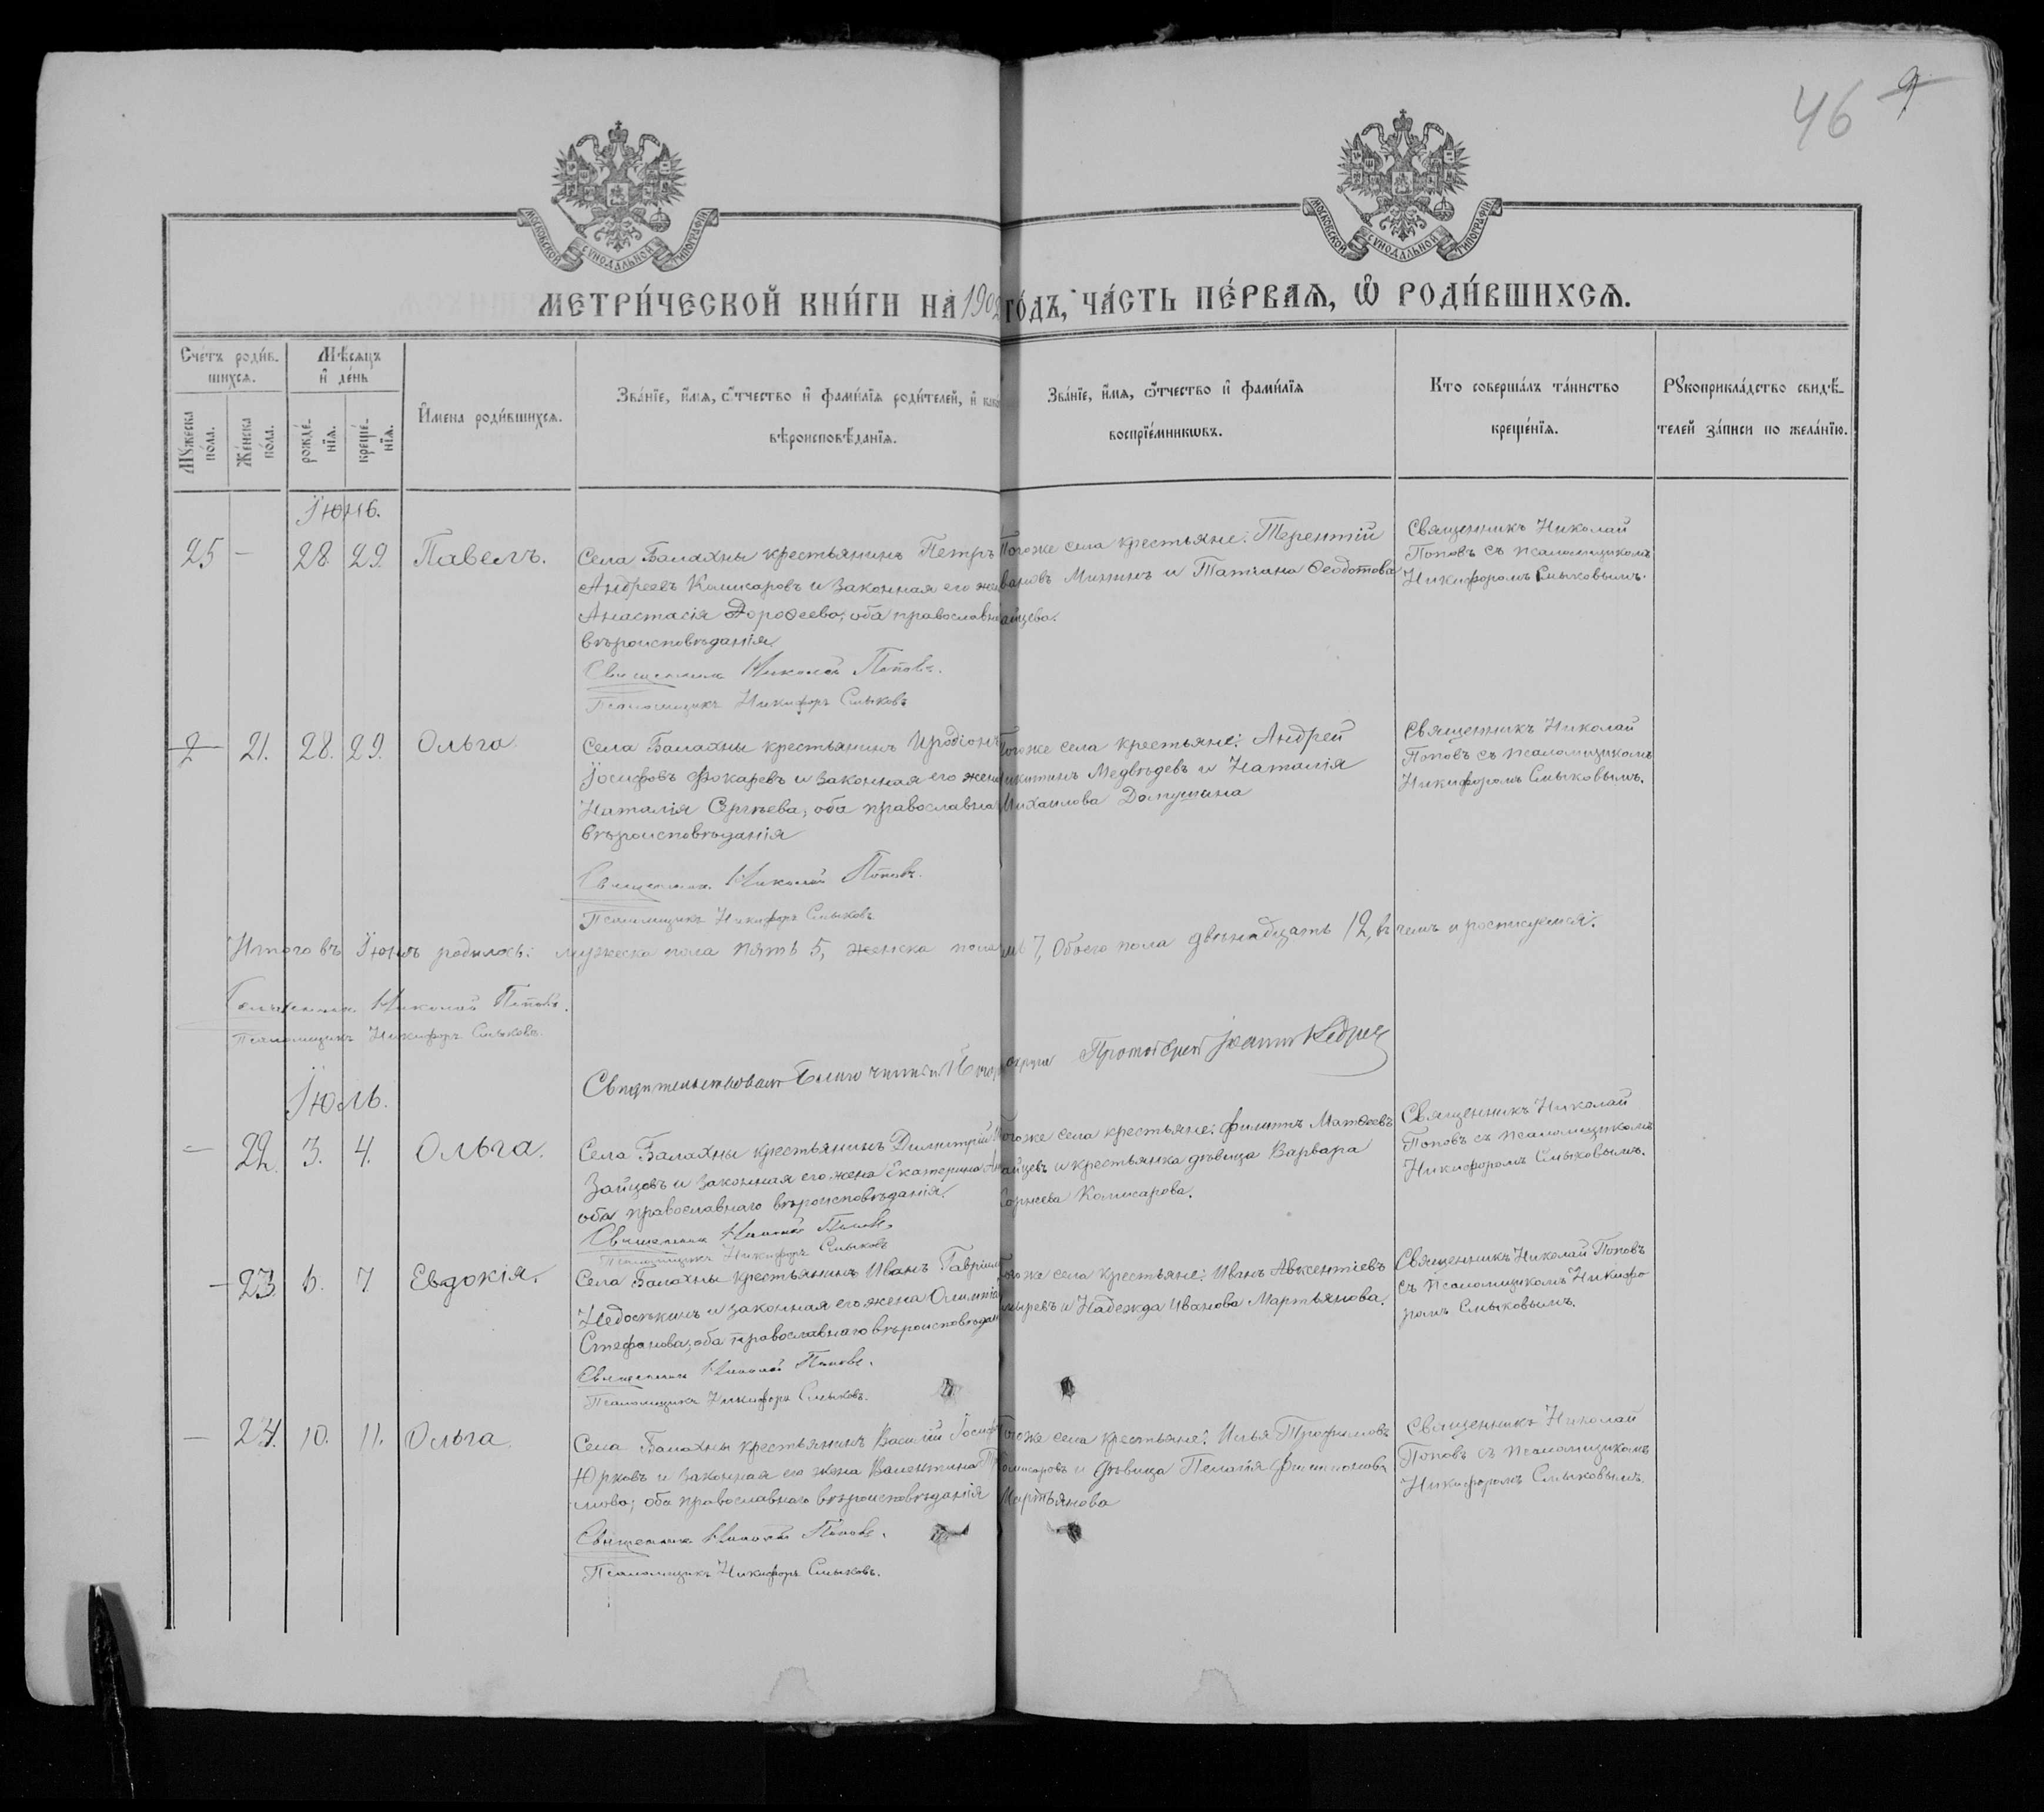 46 9
МОСКОВСКОЙ СѴНОДАЛЬНОЙ ТИПОГРАФІИ
МОСКОВСКОЙ СѴНОДАЛЬНОЙ ТИПОГРАФІИ
МЕТРИ́ЧЕСКОЙ КНИ́ГИ НА 1902 ГО́ДЪ, ЧА́СТЬ ПЕ́РВАѦ, Ѽ РОДИ́ВШИХСѦ.
Сче́тъ роди́в-
шихсѧ.
Мꙋ́жеска
по́ла.
Же́нска
по́ла.
Мѣ́сѧцъ
и҆ де́нь
рожде́-
нїѧ.
креще́-
нїѧ.
И҆мена роди́вшихсѧ.
Зва́нїе, и҆́мѧ, ѻ҆́тчество и҆ фами́лїѧ роди́телей, и҆
вѣроисповѣ́данїѧ.
Зва́нїе, и҆́мѧ, ѻ҆́тчество и҆ фами́лїѧ
воспрїе́мникѡвъ.
Кто̀ соверша́лъ та́инство
креще́нїѧ.
Рꙋкоприкла́дство свидѣ́-
телей за́писи по жела́нїю.
Іюнь.
25 - 28. 29. Павелъ.
Села Балахны крестьянинъ Петръ
Андреевъ Комисаровъ и законная его
Анастасія Дороѳеева; оба
вѣроисповѣданія
Священникъ Николай Поповъ.
Псаломщикъ Никифоръ Смыковъ
Тогоже села крестьяне: Терентій
Митинъ и Татіана Ѳеодотова
Священникъ Николай
Поповъ съ псаломщикомъ
Никифоромъ Смыковымъ.
2 21. 28. 29. Ольга.
Села Балахны крестьянинъ Иродіонъ
Іосифовъ Фокаревъ и законная его жена
Наталія Сергѣева; оба
вѣроисповѣданія
Священникъ Николай Поповъ.
Псаломщикъ Никифоръ Смыковъ
Тогоже села крестьяне: Андрей
Никитинъ Медвѣдевъ и Наталія
Михаилова
Священникъ Николай
Поповъ съ псаломщикомъ
Никифоромъ Смыковымъ.
Итого въ Іюнѣ родилось: мужеска пола пять 5, женска пола 7, Обоего пола двѣнадцать 12, въ чемъ и росписуемся:
Священникъ Николай Поповъ.
Псаломщикъ Никифоръ Смыковъ.
Свидѣтельствовалъ Благочинный округа Протоіерей Іоаннъ
Іюль.
- 22. 3. 4. Ольга.
Села Балахны крестьянинъ Димитрій
Зайцевъ и законная его жена Екатерина
оба православнаго вѣроисповѣданія.
Священникъ Николай Поповъ.
Псаломщикъ Никифоръ Смыковъ
Тогоже села крестьяне: Филиппъ Матѳеевъ
Зайцевъ и крестьянка дѣвица Варвара
Комисарова.
Священникъ Николай
Поповъ съ псаломщикомъ
Никифоромъ Смыковымъ.
- 23. 6. 7. Евдокія.
Села Балахны крестьянинъ Иванъ
Недосѣкинъ и законная его жена
Стефанова; оба православнаго
Священникъ Николай Поповъ.
Псаломщикъ Никифоръ Смыковъ.
Тогоже села крестьяне: Иванъ Авксентіевъ
и Надежда Иванова Мартьянова.
Священникъ Николай Поповъ
съ псаломщикомъ Никифо
ромъ Смыковымъ.
- 24. 10. 11. Ольга.
Села Балахны крестьянинъ Василій
Юрковъ и законная его жена Валентина
мова; оба православнаго вѣроисповѣданія
Священникъ Николай Поповъ.
Псаломщикъ Никифоръ Смыковъ.
Тогоже села крестьяне: Илья Трофимовъ
Комисаровъ и дѣвица Пелагія Филиппова
Мартьянова
Священникъ Николай
Поповъ съ псаломщикомъ
Никифоромъ Смыковымъ.